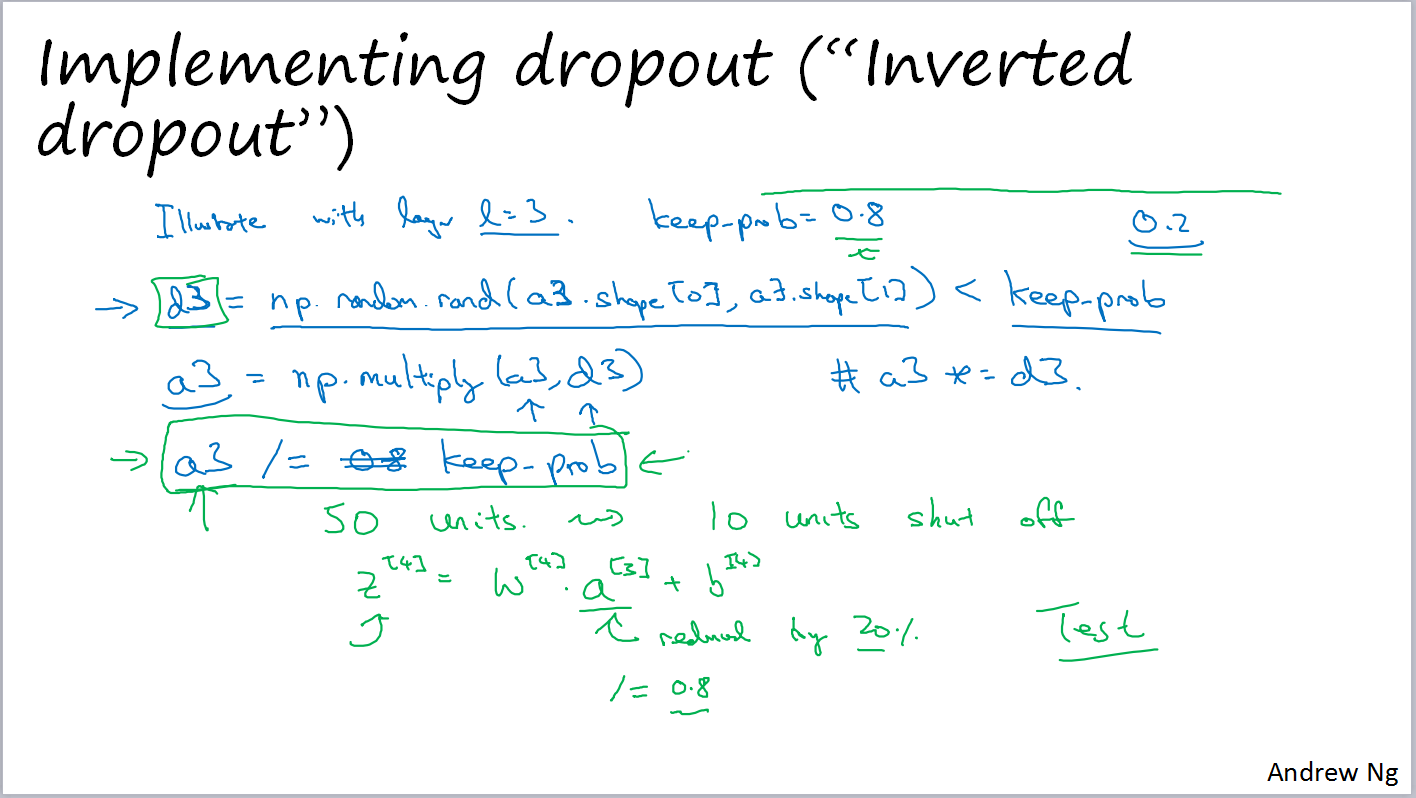 Implementing dropout (“Inverted
dropout”)
Illustrate with layer l=3. keep-prob= 0.8 0.2
→ d3 = np.random.rand(a3.shape[0], a3.shape[1]) < keep-prob
a3 = np.multiply(a3, d3) # a3 *= d3.
→ a3 /= 0.8 keep-prob ←
↑ 50 units. ⇝ 10 units shut off
z^[4] = W^[4] . a^[3] + b^[4]
reduced by 20%. Test
/= 0.8
Andrew Ng